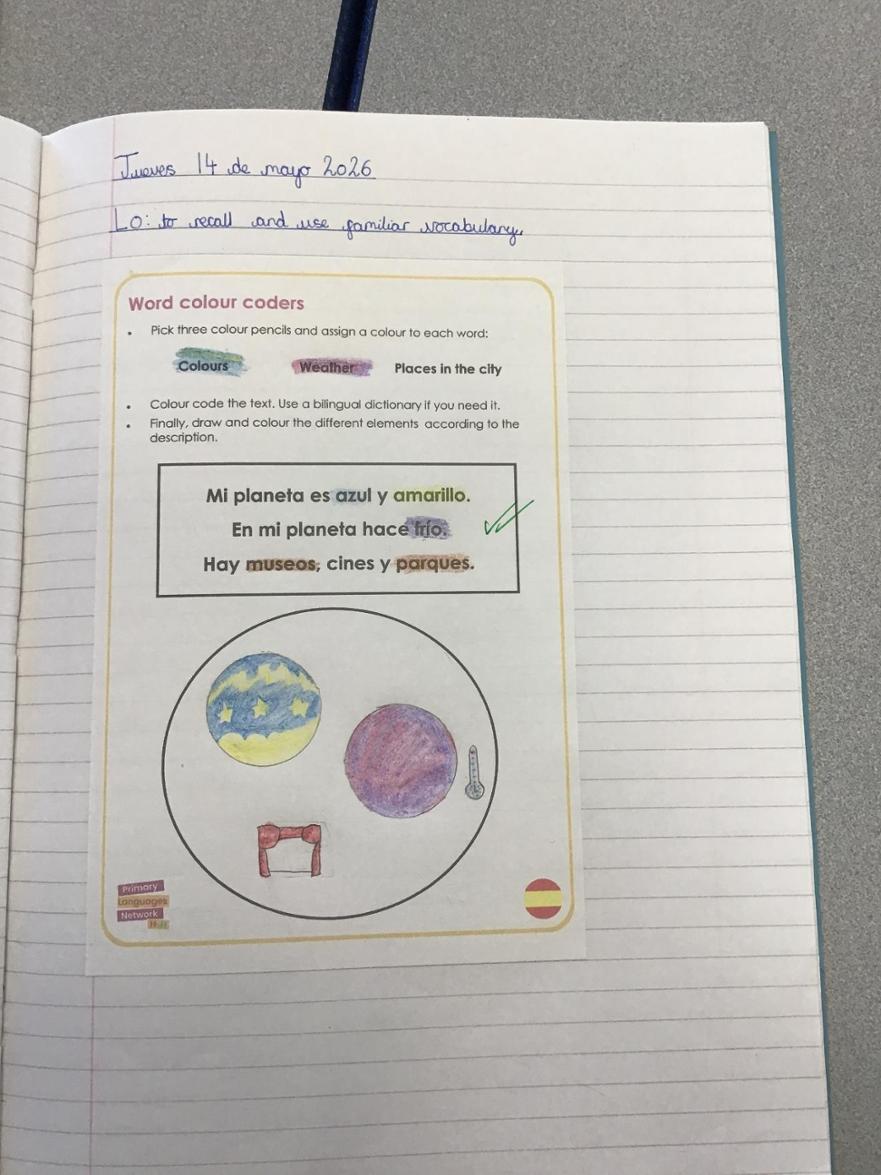 Jueves 14 de mayo 2026
LO: to recall and use familiar vocabulary.
Word colour coders
• Pick three colour pencils and assign a colour to each word:
Colours Weather Places in the city
• Colour code the text. Use a bilingual dictionary if you need it.
• Finally, draw and colour the different elements according to the
description.
Mi planeta es azul y amarillo.
En mi planeta hace frío.
Hay museos, cines y parques.
Primary
Languages
Network
Hub